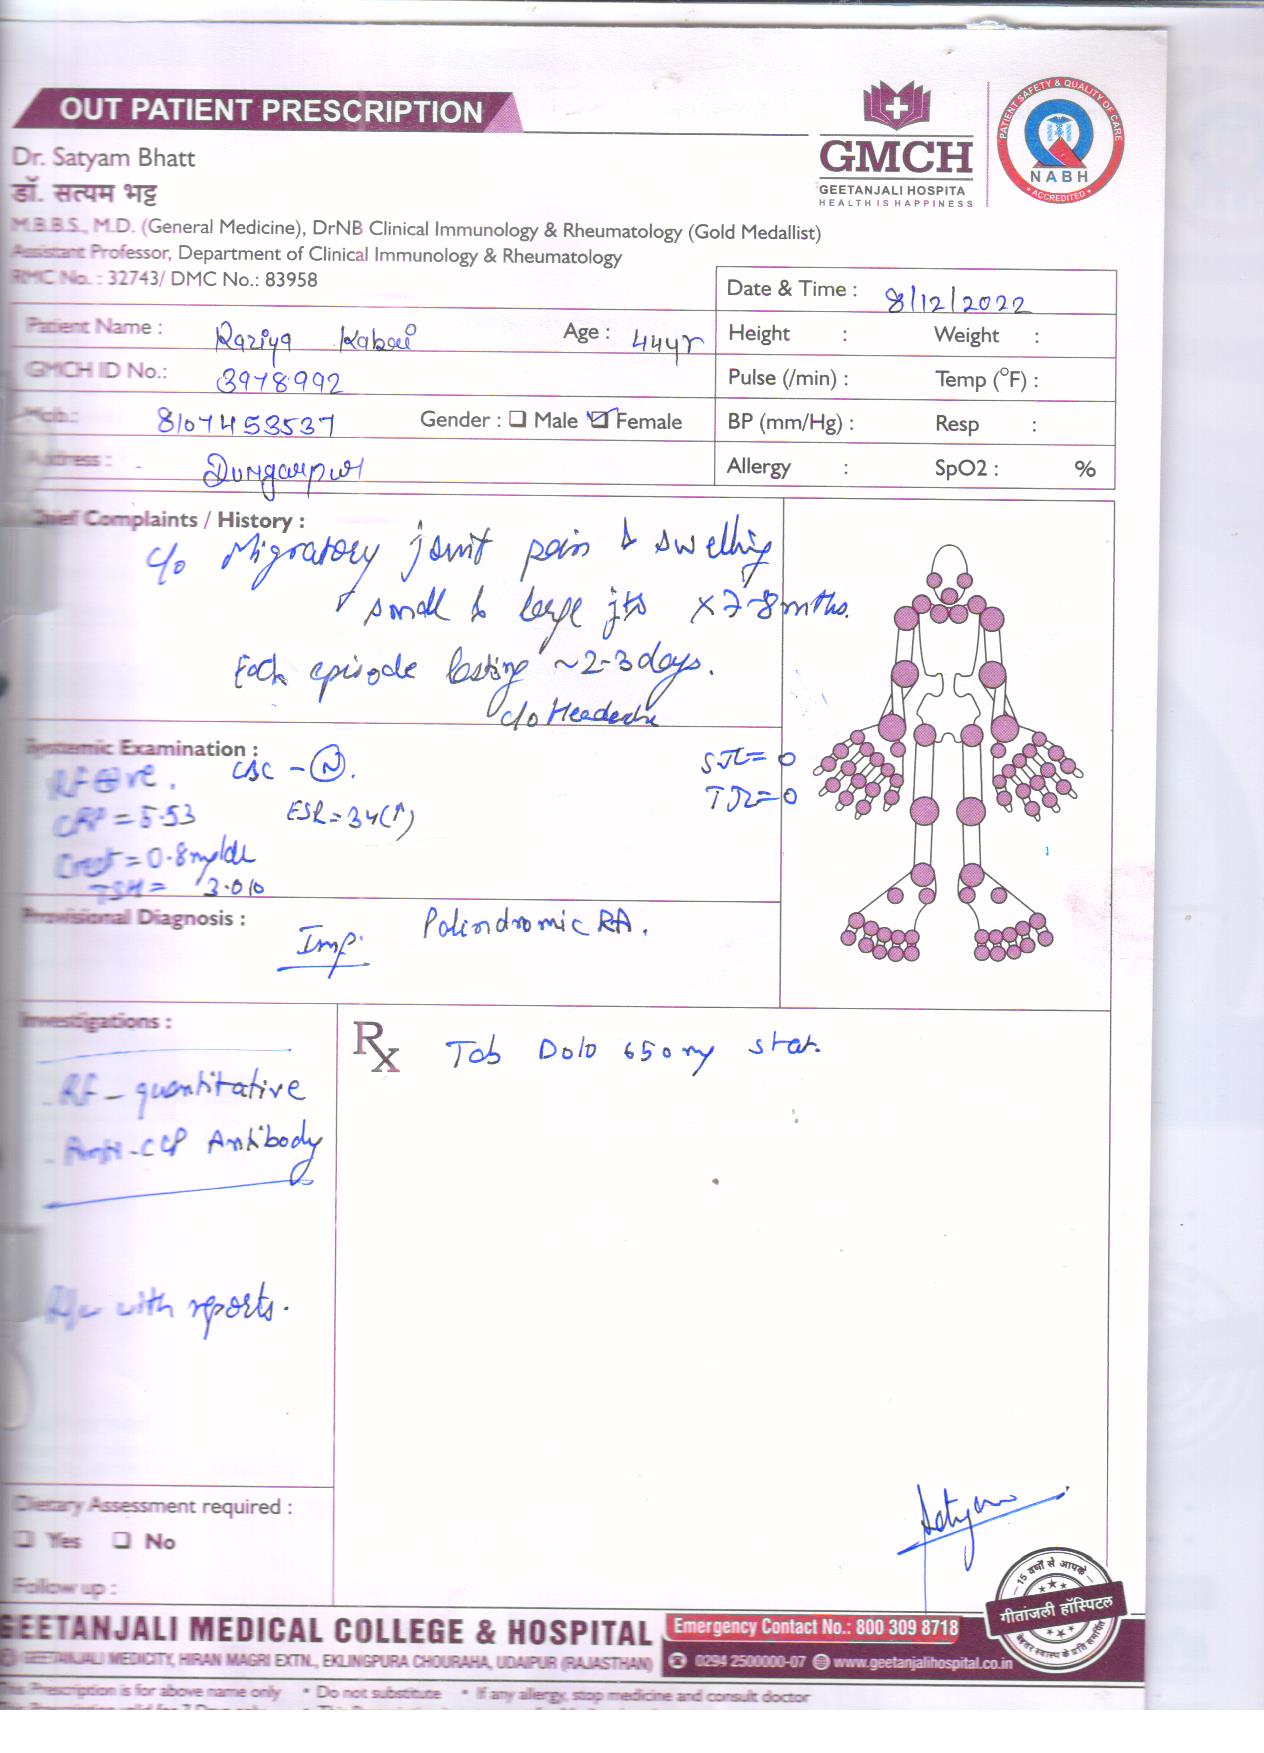 OUT PATIENT PRESCRIPTION
GMCH
GEETANJALI HOSPITA
HEALTH IS HAPPINESS
PATIENT SAFETY & QUALITY OF CARE
NABH
ACCREDITED
Dr. Satyam Bhatt
डॉ. सत्यम भट्ट
M.B.B.S., M.D. (General Medicine), DrNB Clinical Immunology & Rheumatology (Gold Medallist)
Assistant Professor, Department of Clinical Immunology & Rheumatology
RMC No. : 32743/ DMC No.: 83958
Date & Time : 8/12/2022
Patient Name : Raziya Age : 44yr
Height : Weight :
GMCH ID No.: 3978992
Pulse (/min) : Temp (°F) :
Mob.: 8107453537 Gender : Male Female
BP (mm/Hg) : Resp :
Address : Dungarpur
Allergy : SpO2 : %
Chief Complaints / History :
c/o Migratory joint pain & swelling
small & large jts x 7-8 mths.
Each episode lasting ~2-3 days.
c/o Headache
Systemic Examination :
RF +ve. CBC - N.
SJC = 0
CRP = 5.53 ESR = 34(↑)
TJC = 0
Creat = 0.8 mg/dl
TSH = 3.010
Provisional Diagnosis :
Imp. Palindromic RA.
Investigations :
Rx Tab Dolo 650 mg stat.
- RF - quantitative
- Anti-CCP Antibody
R/w with reports.
Dietary Assessment required :
Yes No
Follow up :
15 वर्षों से आपके
गीतांजली हॉस्पिटल
बेहतर स्वास्थ्य के प्रति समर्पित
GEETANJALI MEDICAL COLLEGE & HOSPITAL
Emergency Contact No.: 800 309 8718
GEETANJALI MEDICITY, HIRAN MAGRI EXTN., EKLINGPURA CHOURAHA, UDAIPUR (RAJASTHAN)
0294 2500000-07 www.geetanjalihospital.co.in
This Prescription is for above name only • Do not substitute • If any allergy, stop medicine and consult doctor